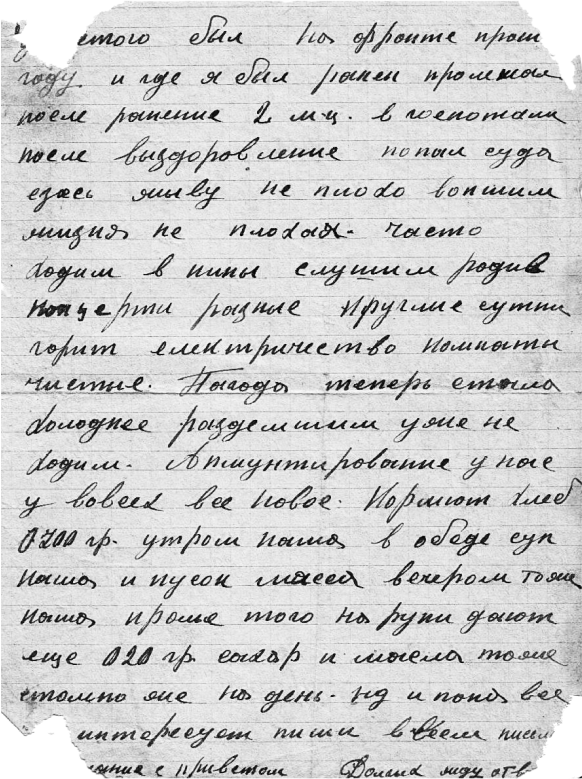 этого был на фронте прош
году и где я был ранен пролежал
после ранение 2 м-ц. в госпотали
после выздоровление попал суда
здесь живу не плохо вопшим
жизня не плохая. часто
ходим в кины слушим радио
концерти разные круглие сутки
горит електричество комнаты
чистые. Пагода теперь стала
холоднее разделшим уже не
ходим. Апмунтирование у нас
у вовсех все новое. Кормют хлеб
0700 гр. утром каша в обеде суп
каша и кусок мяса вечером тоже
каша кроме того на руки дают
еще 020 гр. сахар и масла тоже
столко же на день. ну и пока все
интересует пиши в всем письм
ание с приветом Долгих жду отв